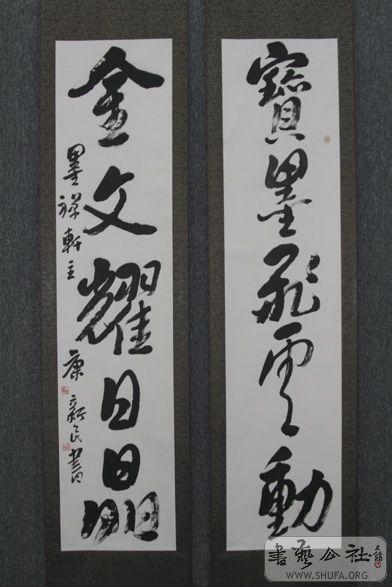 寶墨飛雲動
金文耀日晶
墨禪軒主
康新民書
書藝公社
WWW.SHUFA.ORG